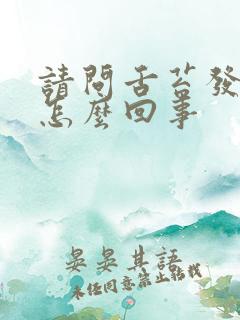 請問舌苔發
怎麼回事
晏晏其語
未經同意禁止轉載